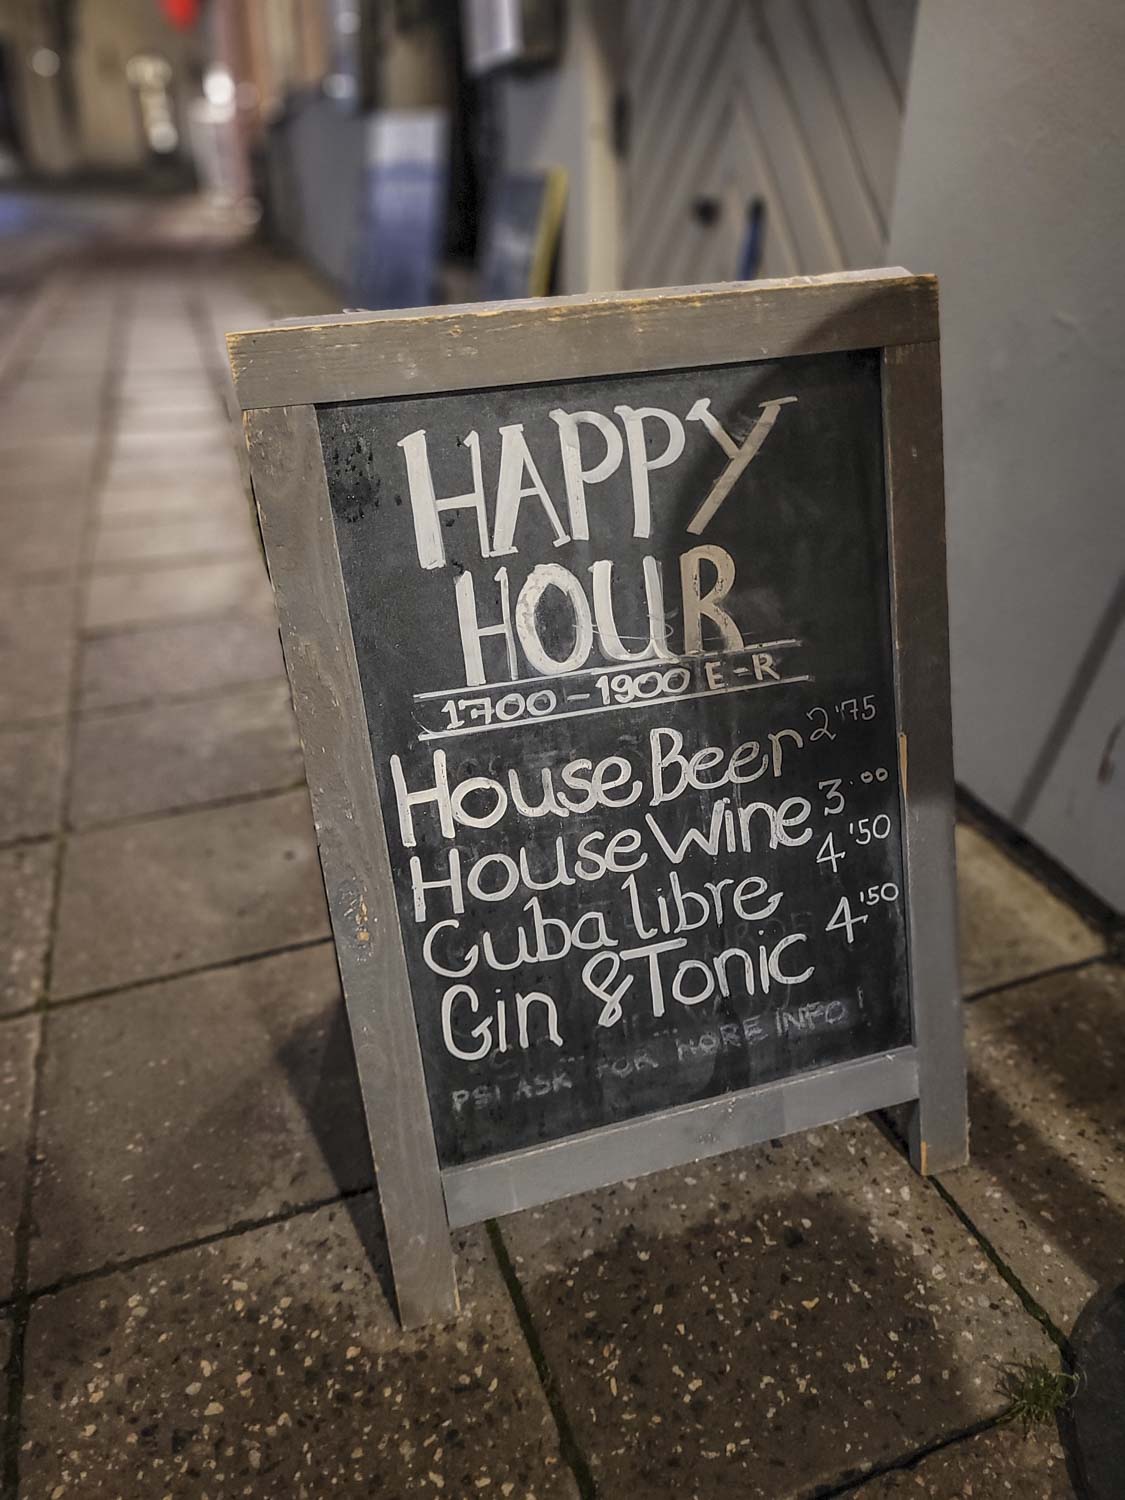 HAPPY
HOUR
1700-1900 E-R
House Beer 2'75
House Wine 3.00
Cuba libre 4'50
Gin & Tonic 4'50
PSI ASK FOR MORE INFO!